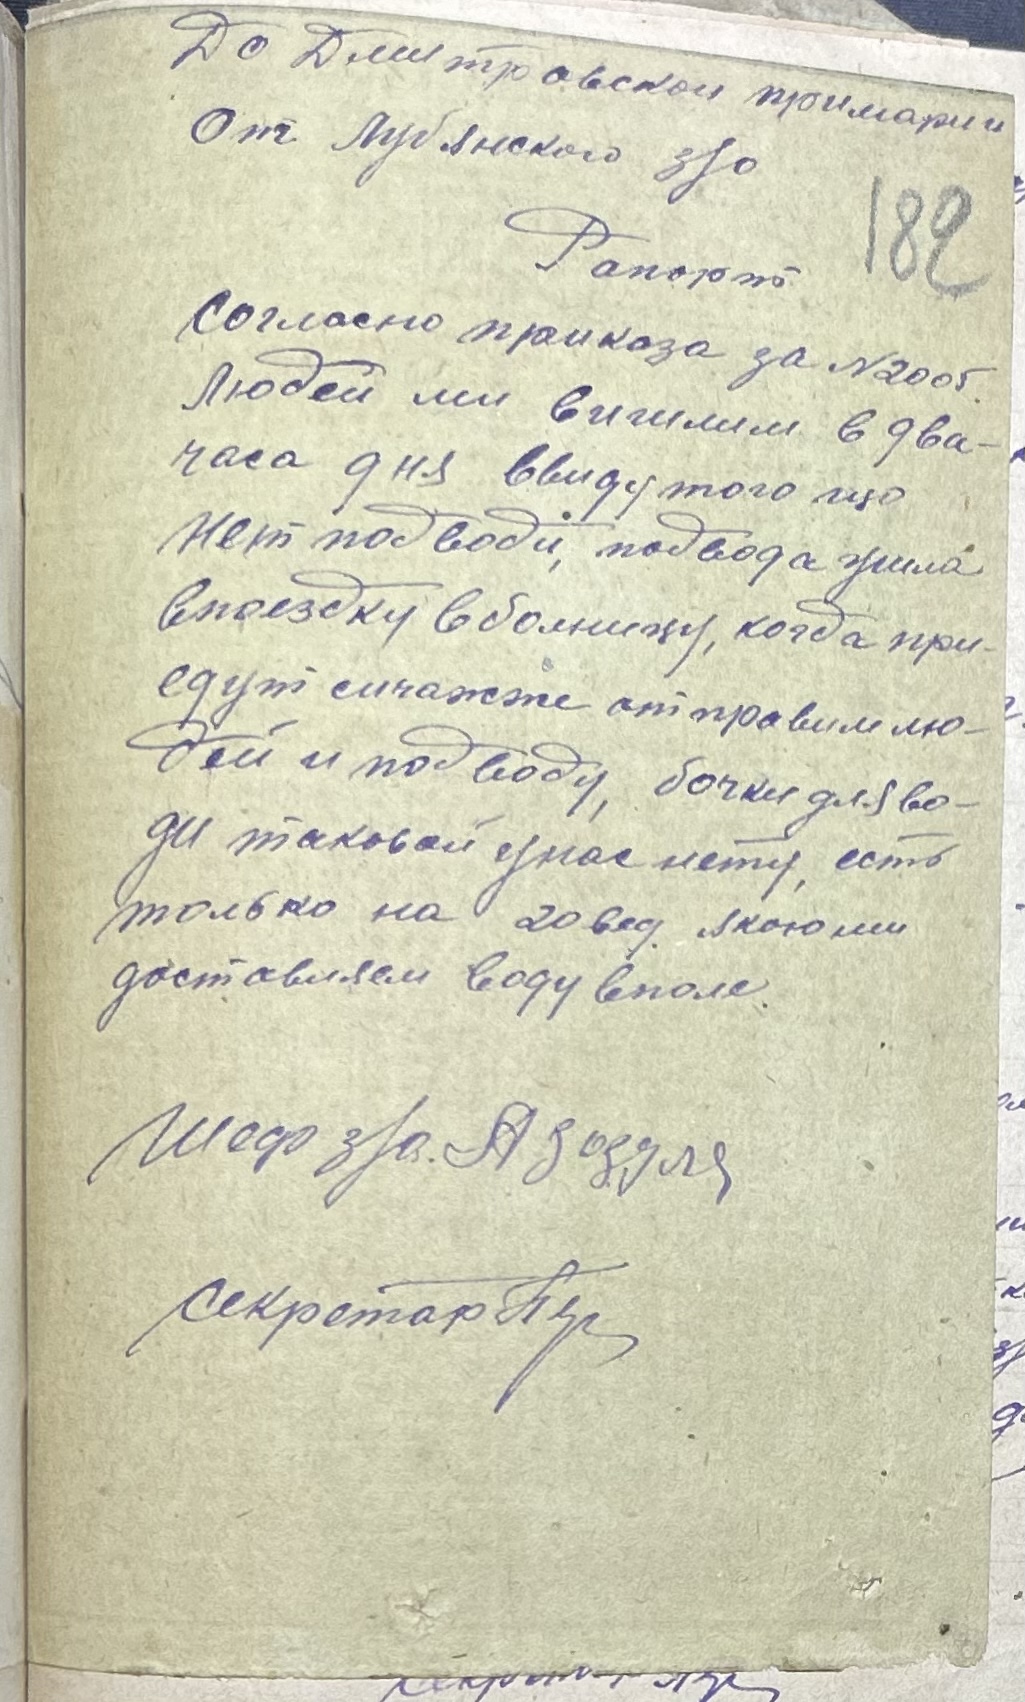 До Дмитровскои примарии
От Лубянского з/о
182
Рапорт
Согласно приказа за N 2005.
Людей ми вишлим в два-
часа дня ввиду того що
нет подводи, подвода ушла
в поездку в болницу, когда при-
едут сичажже отправим лю-
дей и подводу, бочки для во-
ди таковой у нас нету, есть
только на 20 вед. якою ми
доставляем воду в поле.
Шеф з/о. А Зозуля
Секретар